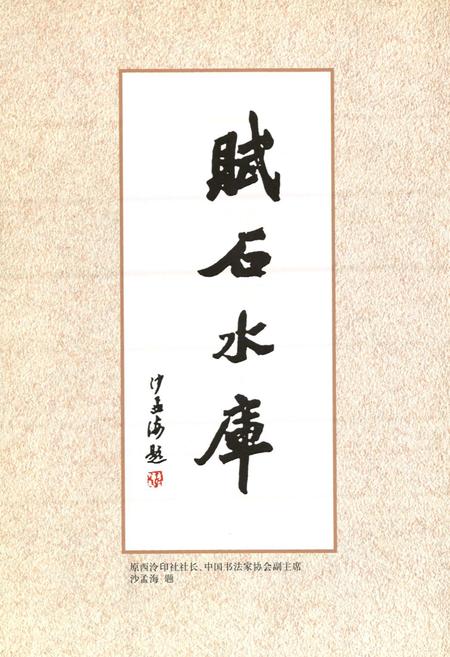 賦石水庫
沙孟海題
原西泠印社社长、中国书法家协会副主席
沙孟海 题